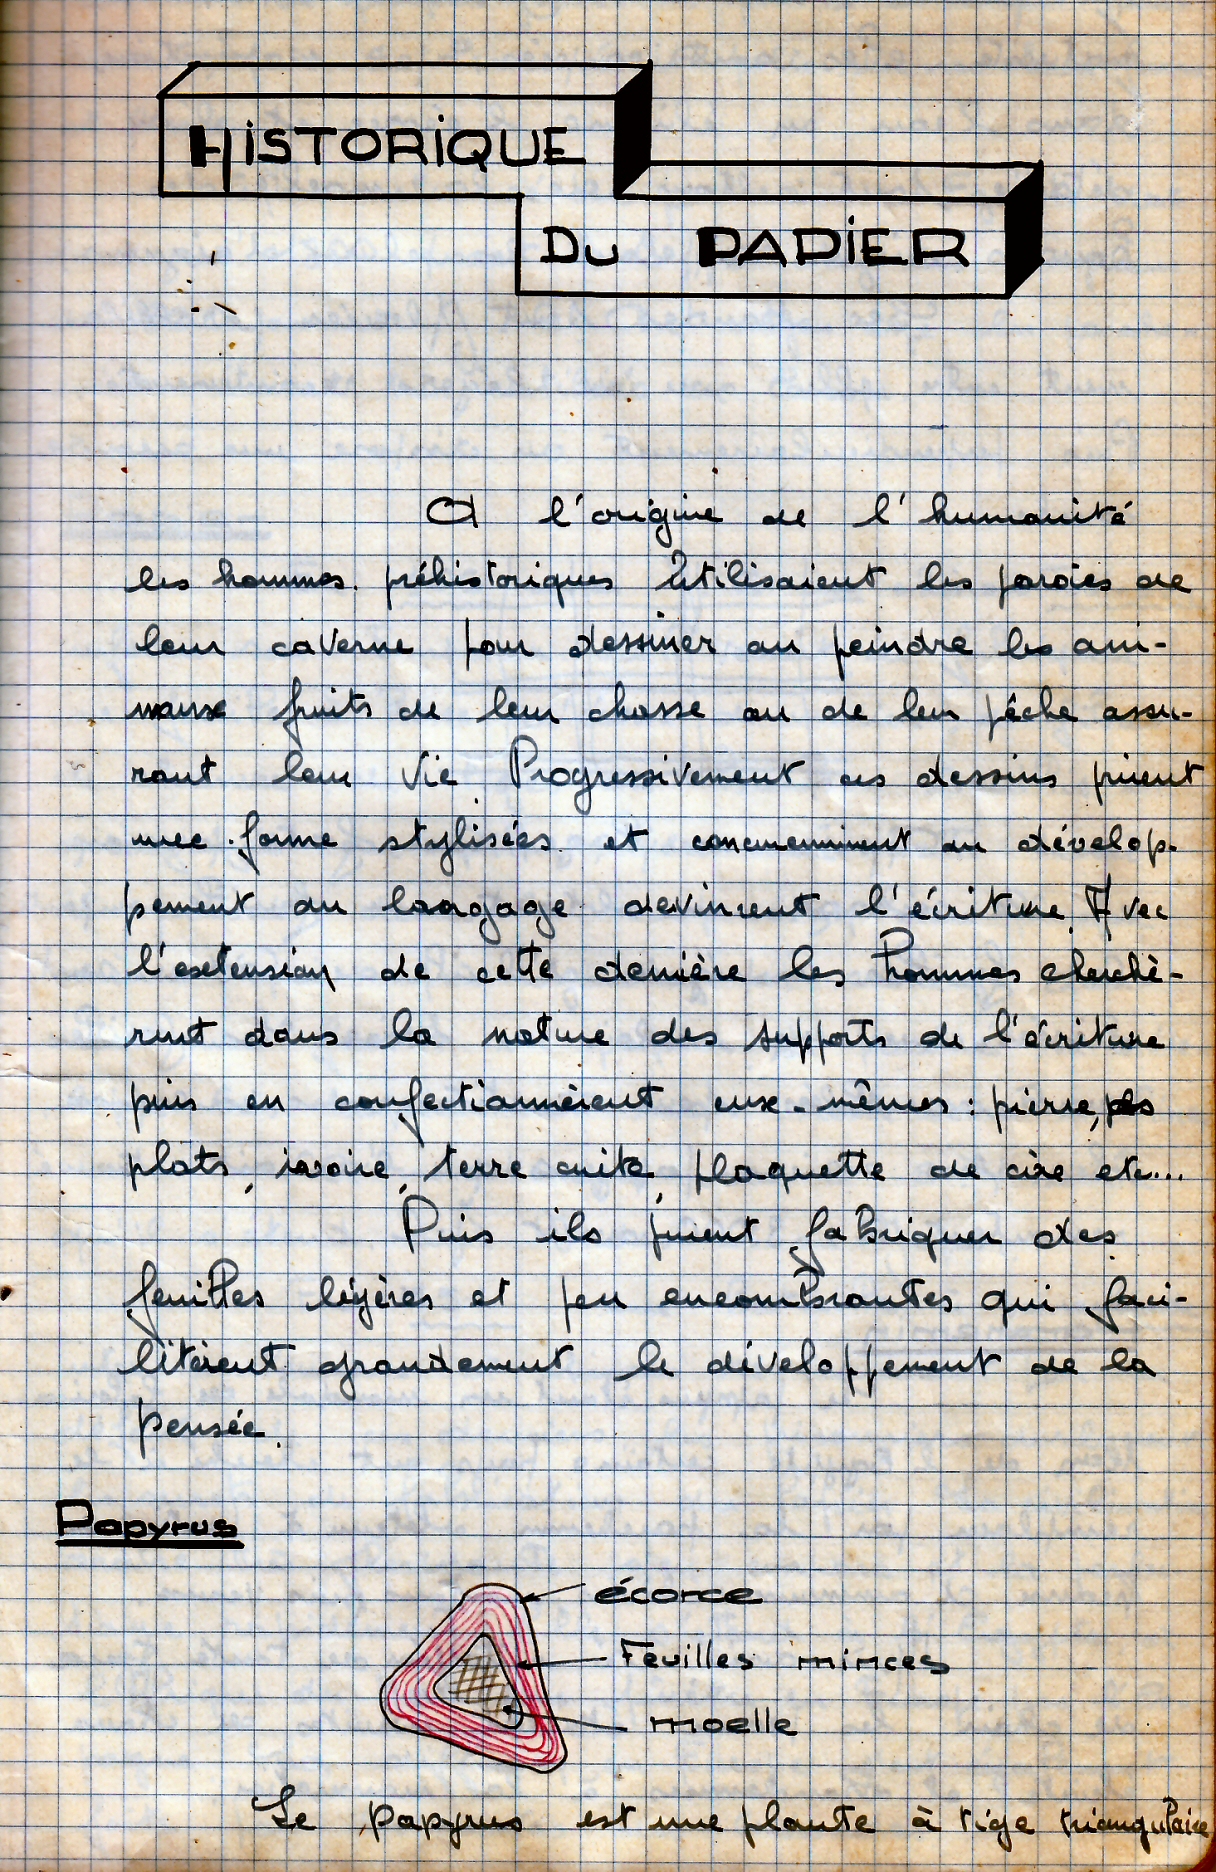 HISTORIQUE
DU PAPIER
A l'origine de l'humanité
les hommes préhistoriques utilisaient les parois de
leur caverne pour dessiner ou peindre les ani-
maux fruits de leur chasse ou de leur pêche assu-
rant leur vie Progressivement ces dessins prirent
une forme stylisées et concurremment au dévelop-
pement du langage devinrent l'écriture Avec
l'extension de cette dernière les hommes cherchè-
rent dans la nature des supports de l'écriture
puis en confectionnèrent eux-mêmes : pierre, os
plats, ivoire, terre cuite, plaquette de cire etc...
Puis ils purent fabriquer des
feuilles légères et peu encombrantes qui faci-
litèrent grandement le développement de la
pensée.
Papyrus
écorce
Feuilles minces
moelle
Le papyrus est une plante à tige triangulaire